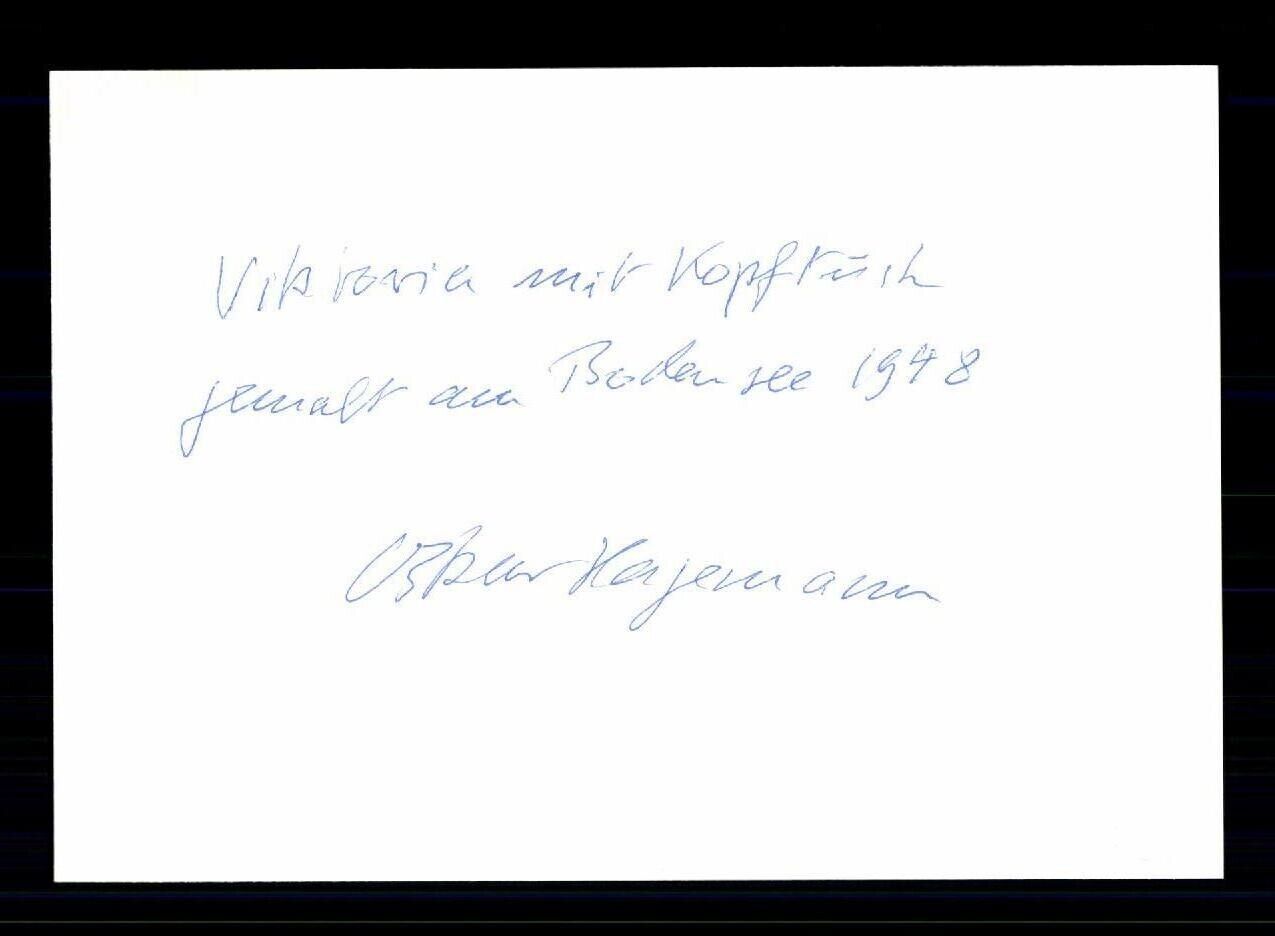 Viktoria mit Kopftuch
gemalt am Bodensee 1948
Oskar Hagemann